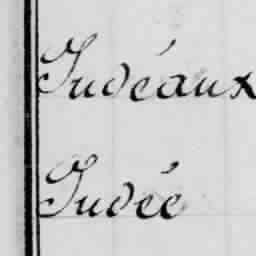 Judéaux
Judée